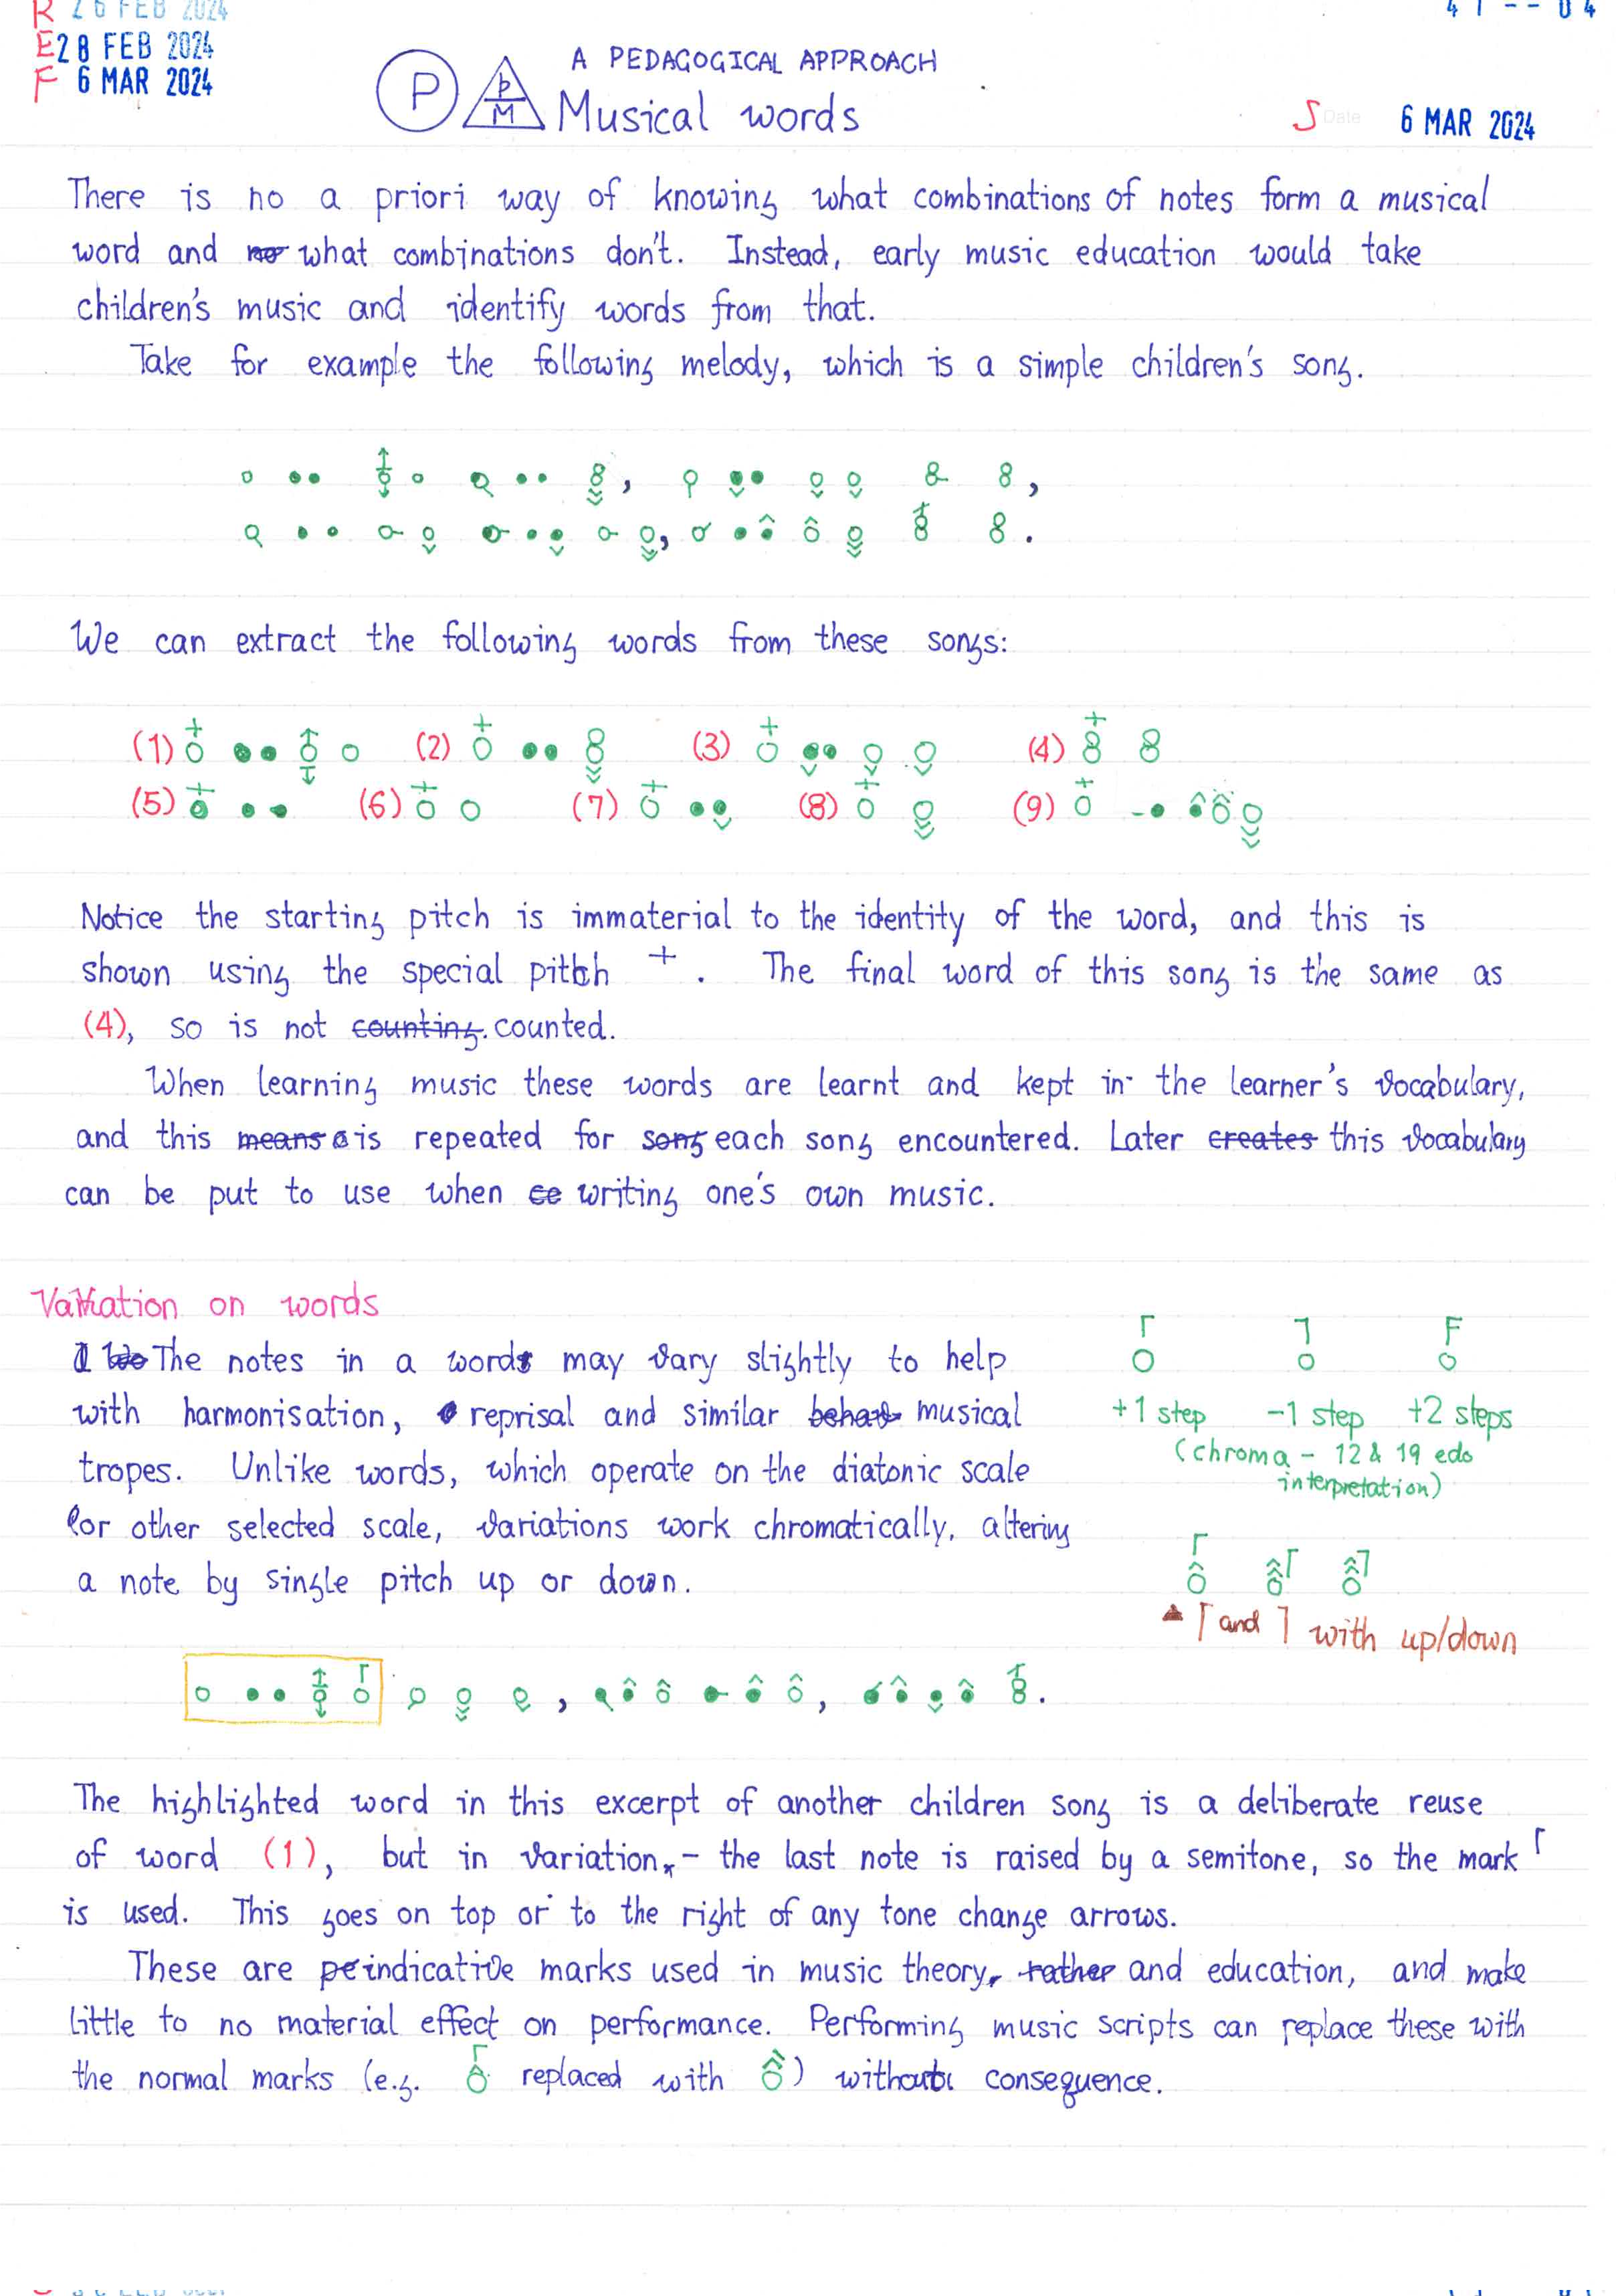 R 26 FEB 2024
E 28 FEB 2024
F 6 MAR 2024
A PEDAGOGICAL APPROACH
P p M Musical words
S Date 6 MAR 2024
There is no a priori way of knowing what combinations of notes form a musical
word and no what combinations don't. Instead, early music education would take
children's music and identify words from that.
Take for example the following melody, which is a simple children's song.
We can extract the following words from these songs:
(1) (2) (3) (4)
(5) (6) (7) (8) (9)
Notice the starting pitch is immaterial to the identity of the word, and this is
shown using the special pitch + . The final word of this song is the same as
(4), so is not counting. counted.
When learning music these words are learnt and kept in the learner's vocabulary,
and this means is repeated for song each song encountered. Later creates this vocabulary
can be put to use when ce writing one's own music.
Variation on words
The notes in a words may vary slightly to help
with harmonisation, reprisal and similar musical
tropes. Unlike words, which operate on the diatonic scale
(or other selected scale, variations work chromatically, altering
a note by single pitch up or down.
+1 step -1 step +2 steps
(chroma - 12 & 19 edo
interpretation)
┌ and ┐ with up/down
The highlighted word in this excerpt of another children song is a deliberate reuse
of word (1), but in variation, - the last note is raised by a semitone, so the mark ┌
is used. This goes on top or to the right of any tone change arrows.
These are indicative marks used in music theory, rather and education, and make
little to no material effect on performance. Performing music scripts can replace these with
the normal marks (e.g. replaced with ) without consequence.